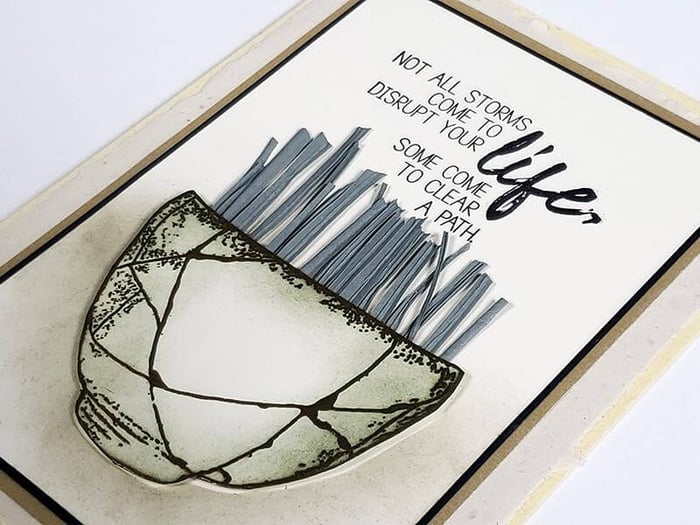 NOT ALL STORMS
COME TO
DISRUPT YOUR
life,
SOME COME
TO CLEAR
A PATH.